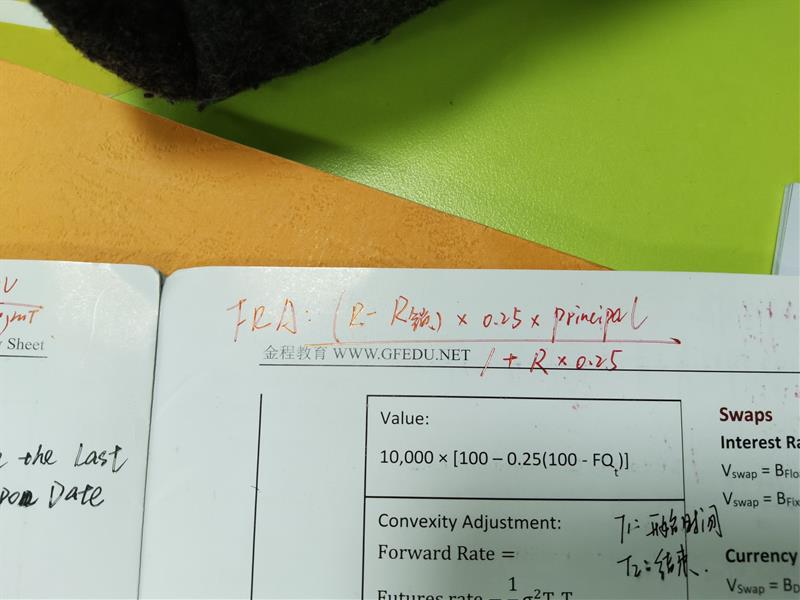 y Sheet
the Last
Date
FRA: (R - R锁) × 0.25 × principal
1 + R × 0.25
金程教育 WWW.GFEDU.NET
Value:
10,000 × [100 – 0.25(100 - FQt)]
Convexity Adjustment:
Forward Rate =
Futures rate – 1/2 σ²T T
T1: 开始时间
T2: 结束.
Swaps
Interest Ra
Vswap = BFlo
Vswap = BFix
Currency
VSwap = BD